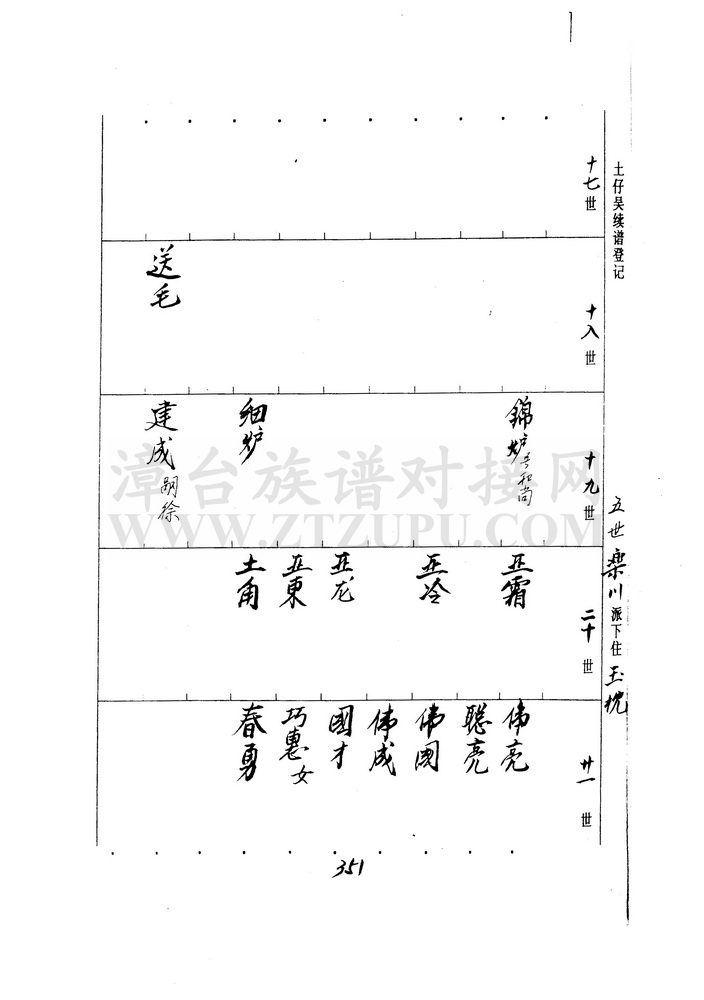 土仔吴续谱登记
五世栾川派下住玉枕
十七世
十八世
送毛
十九世
錦炉
细炉
建成嗣徐
二十世
亚霜
亚冷
亚龙
亚東
土角
廿一世
伟亮
聪亮
伟國
伟成
國才
巧惠女
春勇
351
漳台族谱对接网
WWW.ZTZUPU.COM